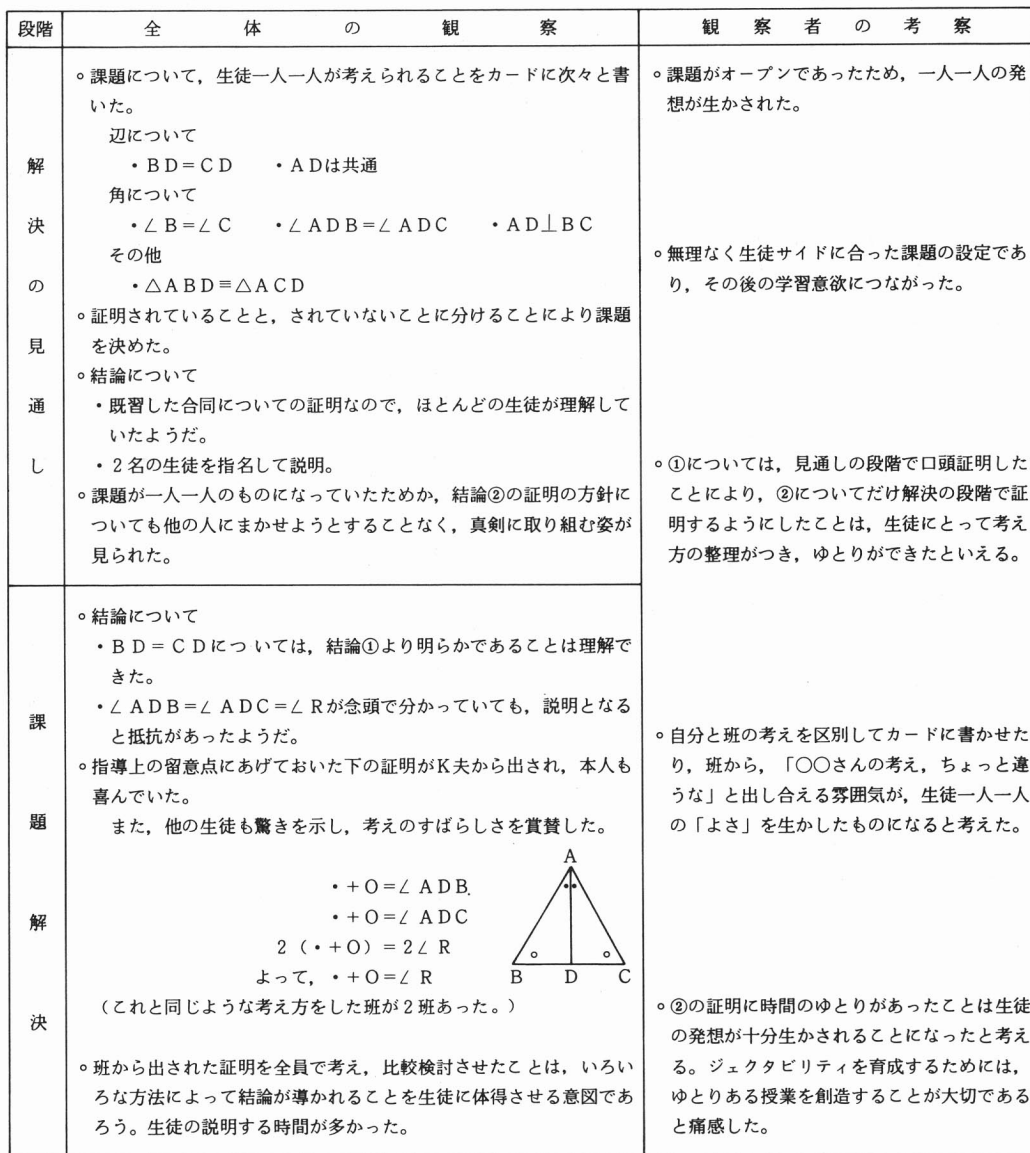 段階
全体の観察
観察者の考察
解決の見通し
∘課題について，生徒一人一人が考えられることをカードに次々と書
いた。
辺について
・ＢＤ＝ＣＤ　・ＡＤは共通
角について
・∠Ｂ＝∠Ｃ　・∠ＡＤＢ＝∠ＡＤＣ　・ＡＤ⊥ＢＣ
その他
・△ＡＢＤ≡△ＡＣＤ
∘証明されていることと，されていないことに分けることにより課題
を決めた。
∘結論について
・既習した合同についての証明なので，ほとんどの生徒が理解して
いたようだ。
・２名の生徒を指名して説明。
∘課題が一人一人のものになっていたためか，結論②の証明の方針に
ついても他の人にまかせようとすることなく，真剣に取り組む姿が
見られた。
∘課題がオープンであったため，一人一人の発
想が生かされた。
∘無理なく生徒サイドに合った課題の設定であ
り，その後の学習意欲につながった。
∘①については，見通しの段階で口頭証明した
ことにより，②についてだけ解決の段階で証
明するようにしたことは，生徒にとって考え
方の整理がつき，ゆとりができたといえる。
課題解決
∘結論について
・ＢＤ＝ＣＤについては，結論①より明らかであることは理解で
きた。
・∠ＡＤＢ＝∠ＡＤＣ＝∠Ｒが念頭で分かっていても，説明となる
と抵抗があったようだ。
∘指導上の留意点にあげておいた下の証明がＫ夫から出され，本人も
喜んでいた。
また，他の生徒も驚きを示し，考えのすばらしさを賞賛した。
・＋Ｏ＝∠ＡＤＢ.
・＋Ｏ＝∠ＡＤＣ
２（・＋Ｏ）＝２∠Ｒ
よって，・＋Ｏ＝∠Ｒ
A
B D C
（これと同じような考え方をした班が２班あった。）
∘班から出された証明を全員で考え，比較検討させたことは，いろい
ろな方法によって結論が導かれることを生徒に体得させる意図であ
ろう。生徒の説明する時間が多かった。
∘自分と班の考えを区別してカードに書かせた
り，班から，「○○さんの考え，ちょっと違
うな」と出し合える雰囲気が，生徒一人一人
の「よさ」を生かしたものになると考えた。
∘②の証明に時間のゆとりがあったことは生徒
の発想が十分生かされることになったと考え
る。ジェクタビリティを育成するためには，
ゆとりある授業を創造することが大切である
と痛感した。